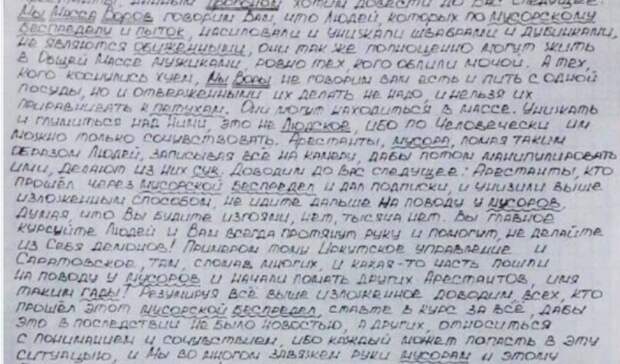 Арестанты, данным прогоном хотим довести до Вас следущее:
Мы Масса Воров говорим Вам, что Людей, которых по мусорскому
беспределу и пыток, насиловали и унижали швабрами и дубинками,
не являются обиженными, они так же полноценно могут жить
в Общей Массе мужиками, ровно тех кого облили мочой. А тех,
кого коснулись хуем, Мы Воры не говорим вам есть и пить с одной
посуды, но и отверженными их делать не надо, и нельзя их
приравнивать к петухам. Они могут находиться в массе. Унижать
и глумиться над ними, это не Людское, ибо по Человечески им
можно только сочувствовать. Арестанты, мусора, ломая таким
образом Людей, записывая всё на камеры, дабы потом манипулировать
ими, делают из них сук. Доводим до Вас следущее: Арестанты, кто
прошёл через мусорской беспредел и дал подписки, и унизили выше
изложенным способом, не идите дальше на поводу у мусоров
думая, что Вы будите изгоями, нет, тысяча нет. Вы главное
курсуйте Людей и Вам всегда протянут руку и помогут, не делайте
из Себя демонов! Примером тому Иркутское управление и
Саратовское, там, сломав многих, и какая-то часть пошли
на поводу у мусоров и начали ломать других Арестантов, имя
таким гады! Резумируя всё выше изложенное доводим всех, кто
прошёл этот мусорской беспредел, ставьте в курс за всё, дабы
это в последствии не было новостью, а других, относиться
с пониманием и сочувствием, ибо каждый может попасть в эту
ситуацию, и Мы во многом завяжем руки мусорам и этому